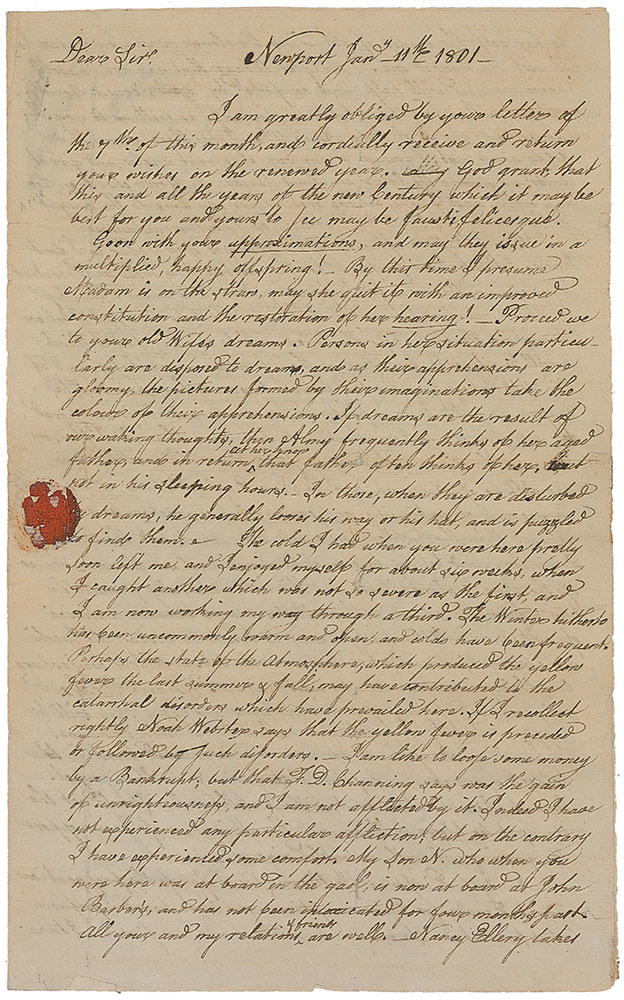 Dear Sir. Newport Jany 11th 1801
I am greatly obliged by your letter of
the 7th of this month, and cordially receive and return
your wishes on the renewed year. God grant, that
this and all the years of the new Century which it may be
best for you and yours to see may be fausti felicesque.
Go on with your approximations, and may they issue in a
multiplied, happy offspring! – By this time I presume
Madam is on the straw, may she quit it with an improved
constitution and the restoration of her hearing! – Proceed we
to your old Wife's dreams. Persons in her situation particu-
larly are disposed to dreams, and as their apprehensions are
gloomy, the pictures formed by their imaginations take the
colour of their apprehensions. If dreams are the result of
our waking thoughts, then Almy frequently thinks of her aged
father, and in return, that father often thinks of her, but
not in his sleeping hours. – In those, when they are disturbed
by dreams, he generally looses his way or his hat, and is puzzled
to find them. – The cold I had when you were here pretty
soon left me, and I enjoyed myself for about six weeks, when
I caught another which was not so severe as the first, and
I am now working my way through a third. The Winter hitherto
has been uncommonly warm and open, and colds have been frequent.
Perhaps the state of the Atmosphere, which produced the yellow
fever the last summer & fall, may have contributed to the
catarrhal disorders which have prevailed here. If I recollect
rightly Noah Webster says that the yellow fever is preceded
or followed by such disorders. – I am like to loose some money
by a Bankrupt; but that F. D. Channing says was the gain
of unrighteousness, and I am not afflicted by it. Indeed I have
not experienced any particular affliction, but on the contrary
I have experienced some comfort. My Son N. who when you
were here was at board in the gaol, is now at board at John
Barber's, and has not been intoxicated for four months past.
All your and my relations & friends are well. – Nancy Ellery takes